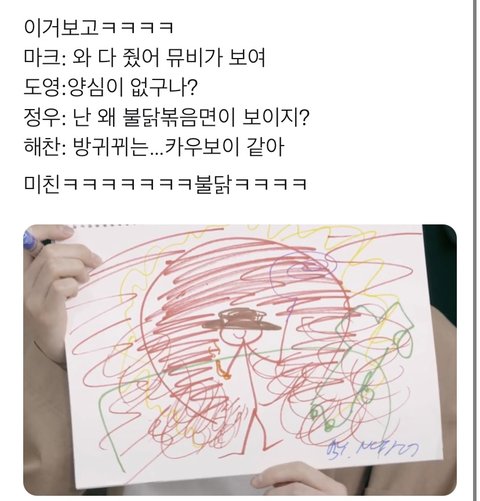 이거보고ㅋㅋㅋㅋ
마크: 와 다 줬어 뮤비가 보여
도영:양심이 없구나?
정우: 난 왜 불닭볶음면이 보이지?
해찬: 방귀뀌는...카우보이 같아
미친ㅋㅋㅋㅋㅋㅋㅋ불닭ㅋㅋㅋㅋ